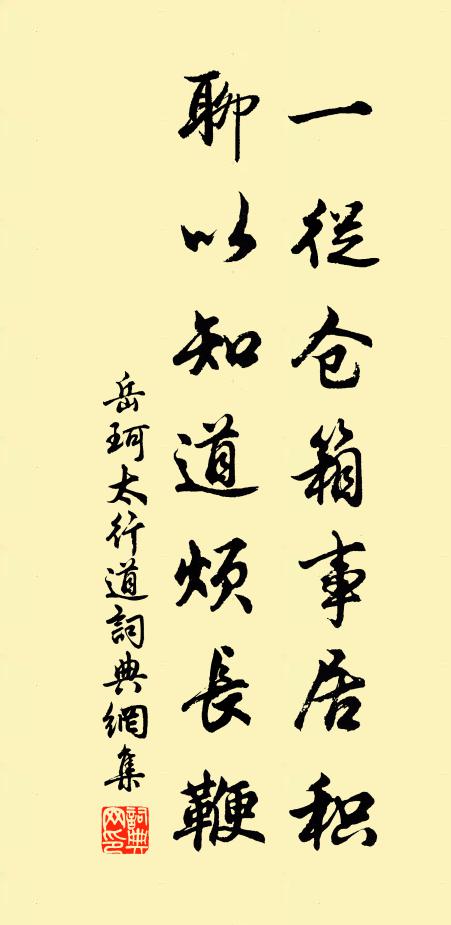 一從仓箱事居积
聊以知道煩長鞭
岳珂太行道詞典網集
詞典网印